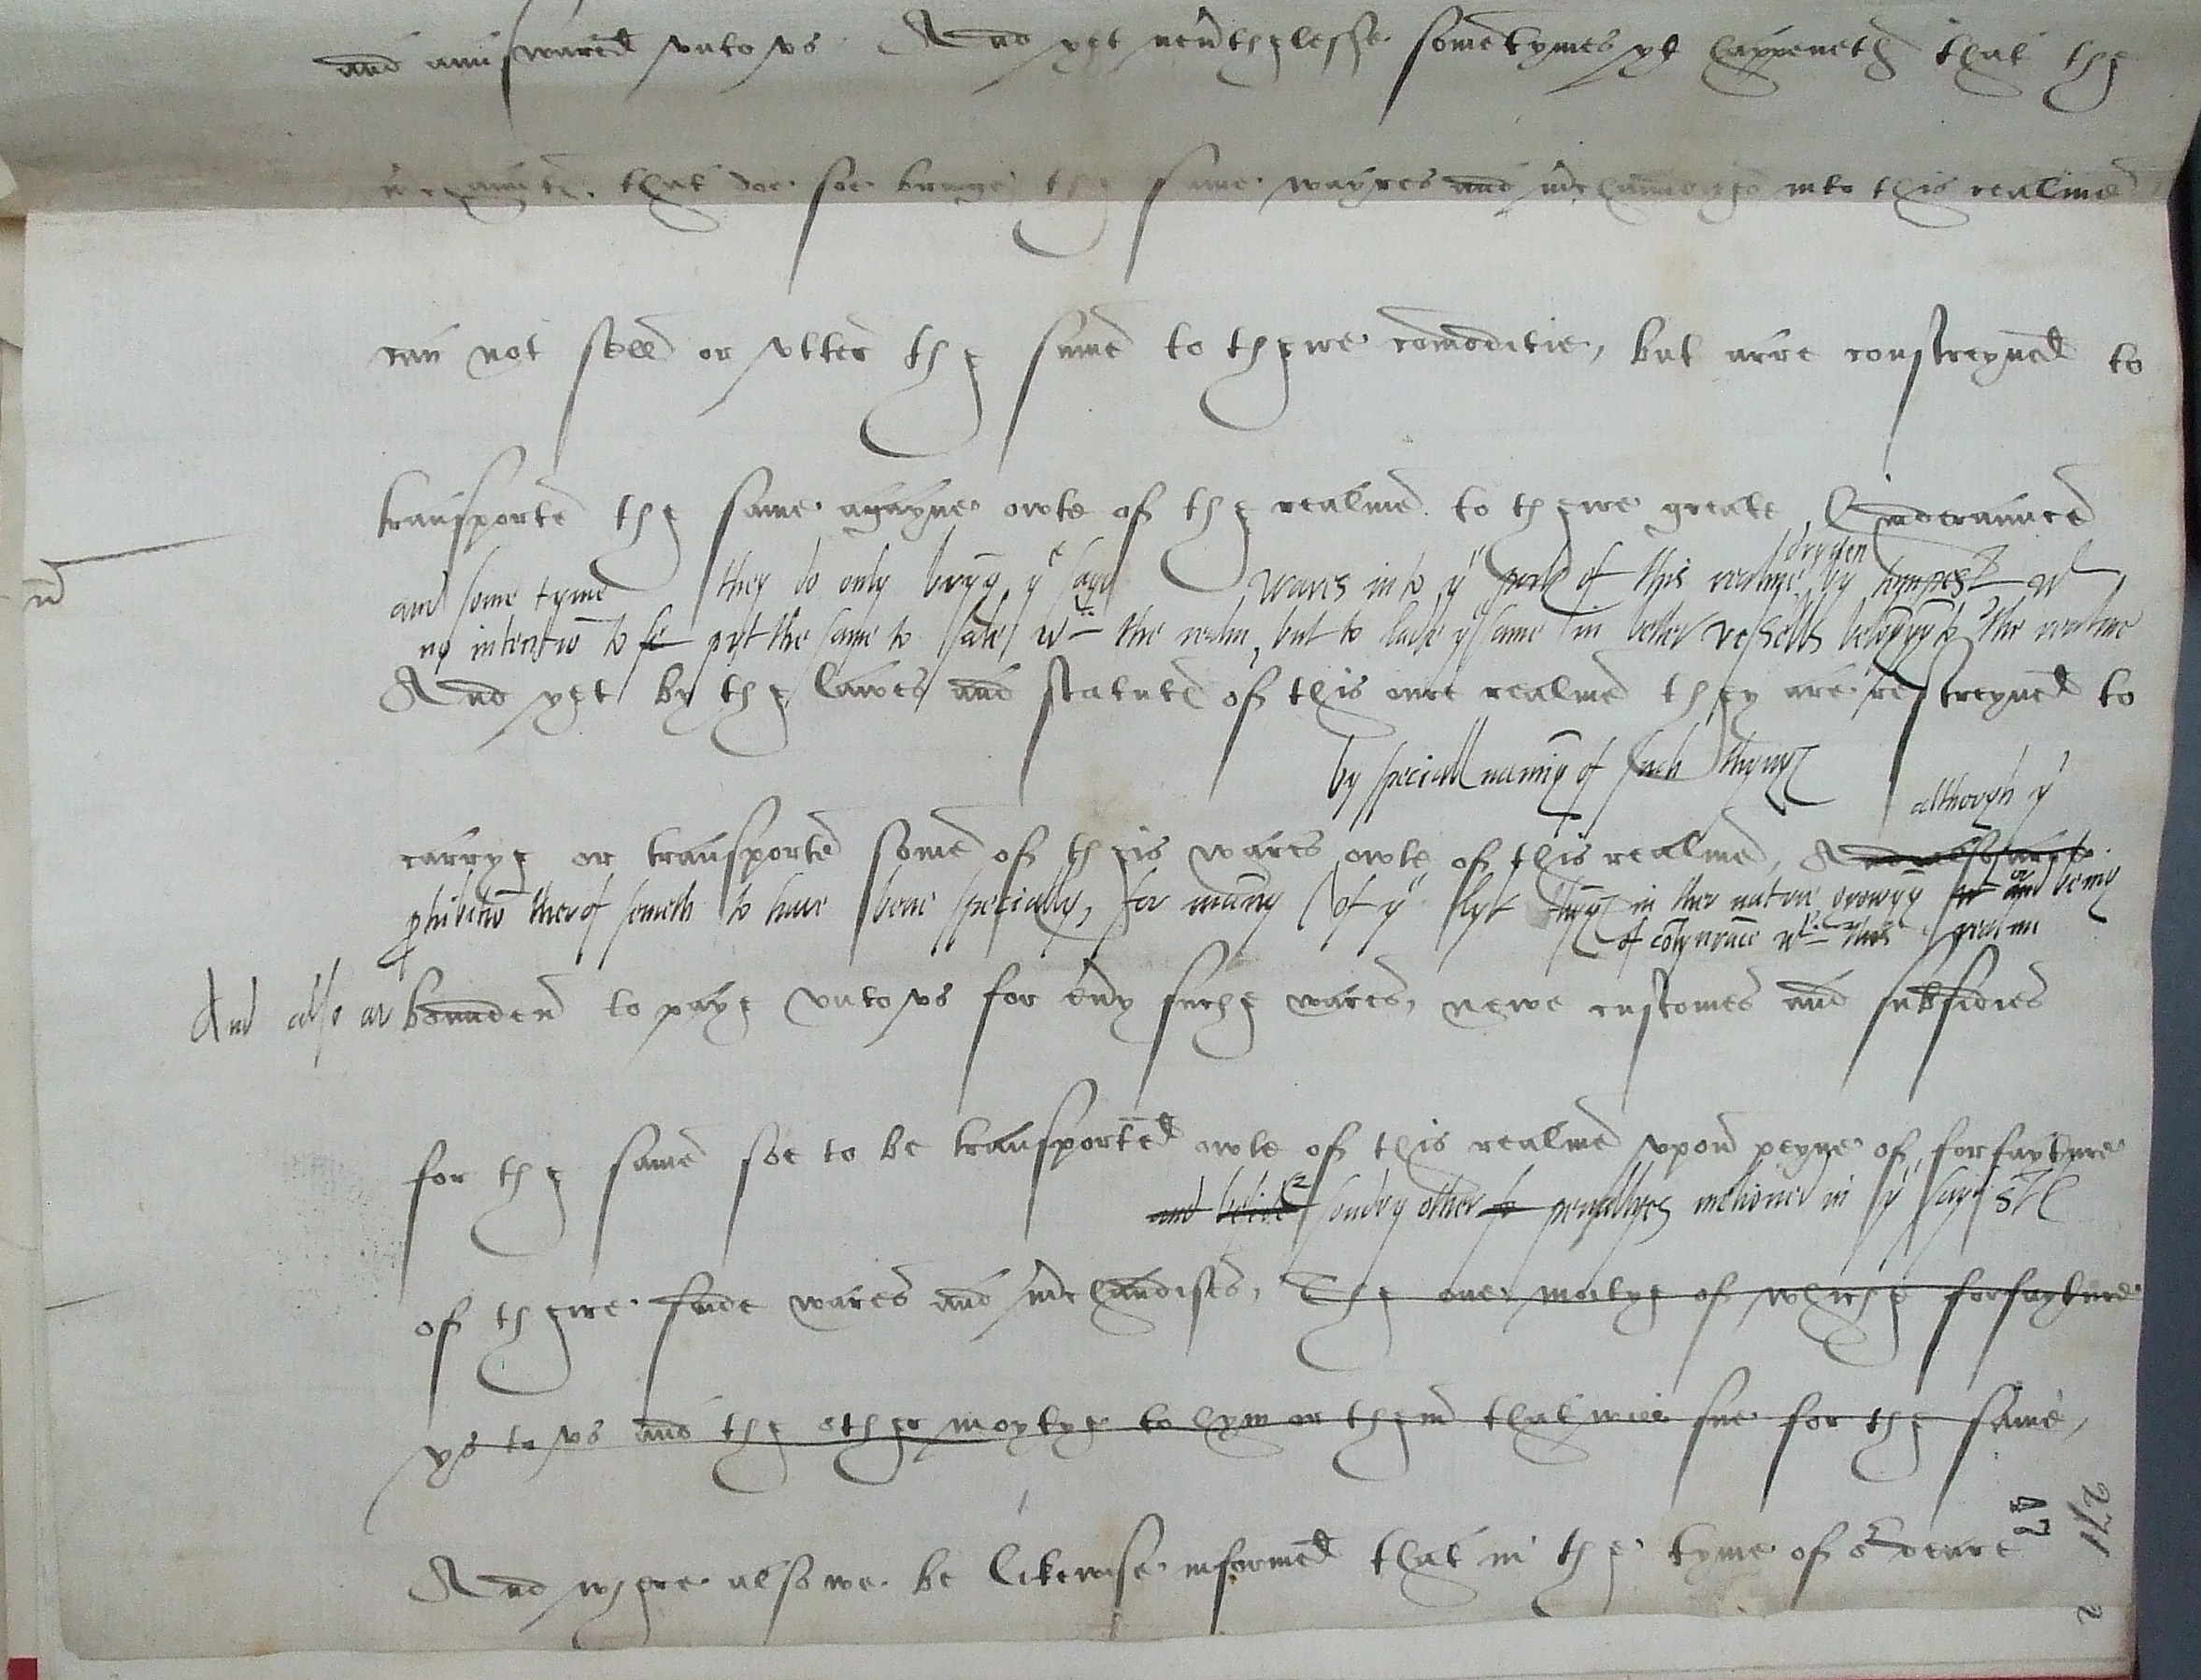 and aunswared vnto vs And yet neuthelesse sometymes yt happeneth that the
that doe soe bringe the same wayres and mchaundizes into this realme
can not sell or vtter the same to theire comoditie, but arre constreyned to
transporte the same agayne owte of the realme to theire greate hinderaunce
dryven
and some tyme they do only bryng ye sayd wares into ye port of this realme by tempest wt
no intention to se put the same to sale wt in the realm, but to lade ye same in better vessells belongyng to the realme
And yet by the lawes and statute of this oure realme they are restreyned to
by speciall naming of such thyngs
although ye
carrye or transporte some of theis wares owte of this realme, And
phibitio therof semeth to have bene specially, for many of ye lyk thyngs in ther nature growyng or and being
of contynuance wt in this realm
And also ar bounden to paye vnto vs for eny suche wares, newe customes and subsidies
for the same soe to be transported owte of this realme vpon peyne of forfayture
and beside sondry other penaltyes mentioned in ye sayd
of theire saide wares and mchaundises, The one moitye of whiche forfayture
ys to vs and the other moytye to hym or them that will sue for the same,
And where also we be likewise informed that in the tyme of o deare
47
271
2